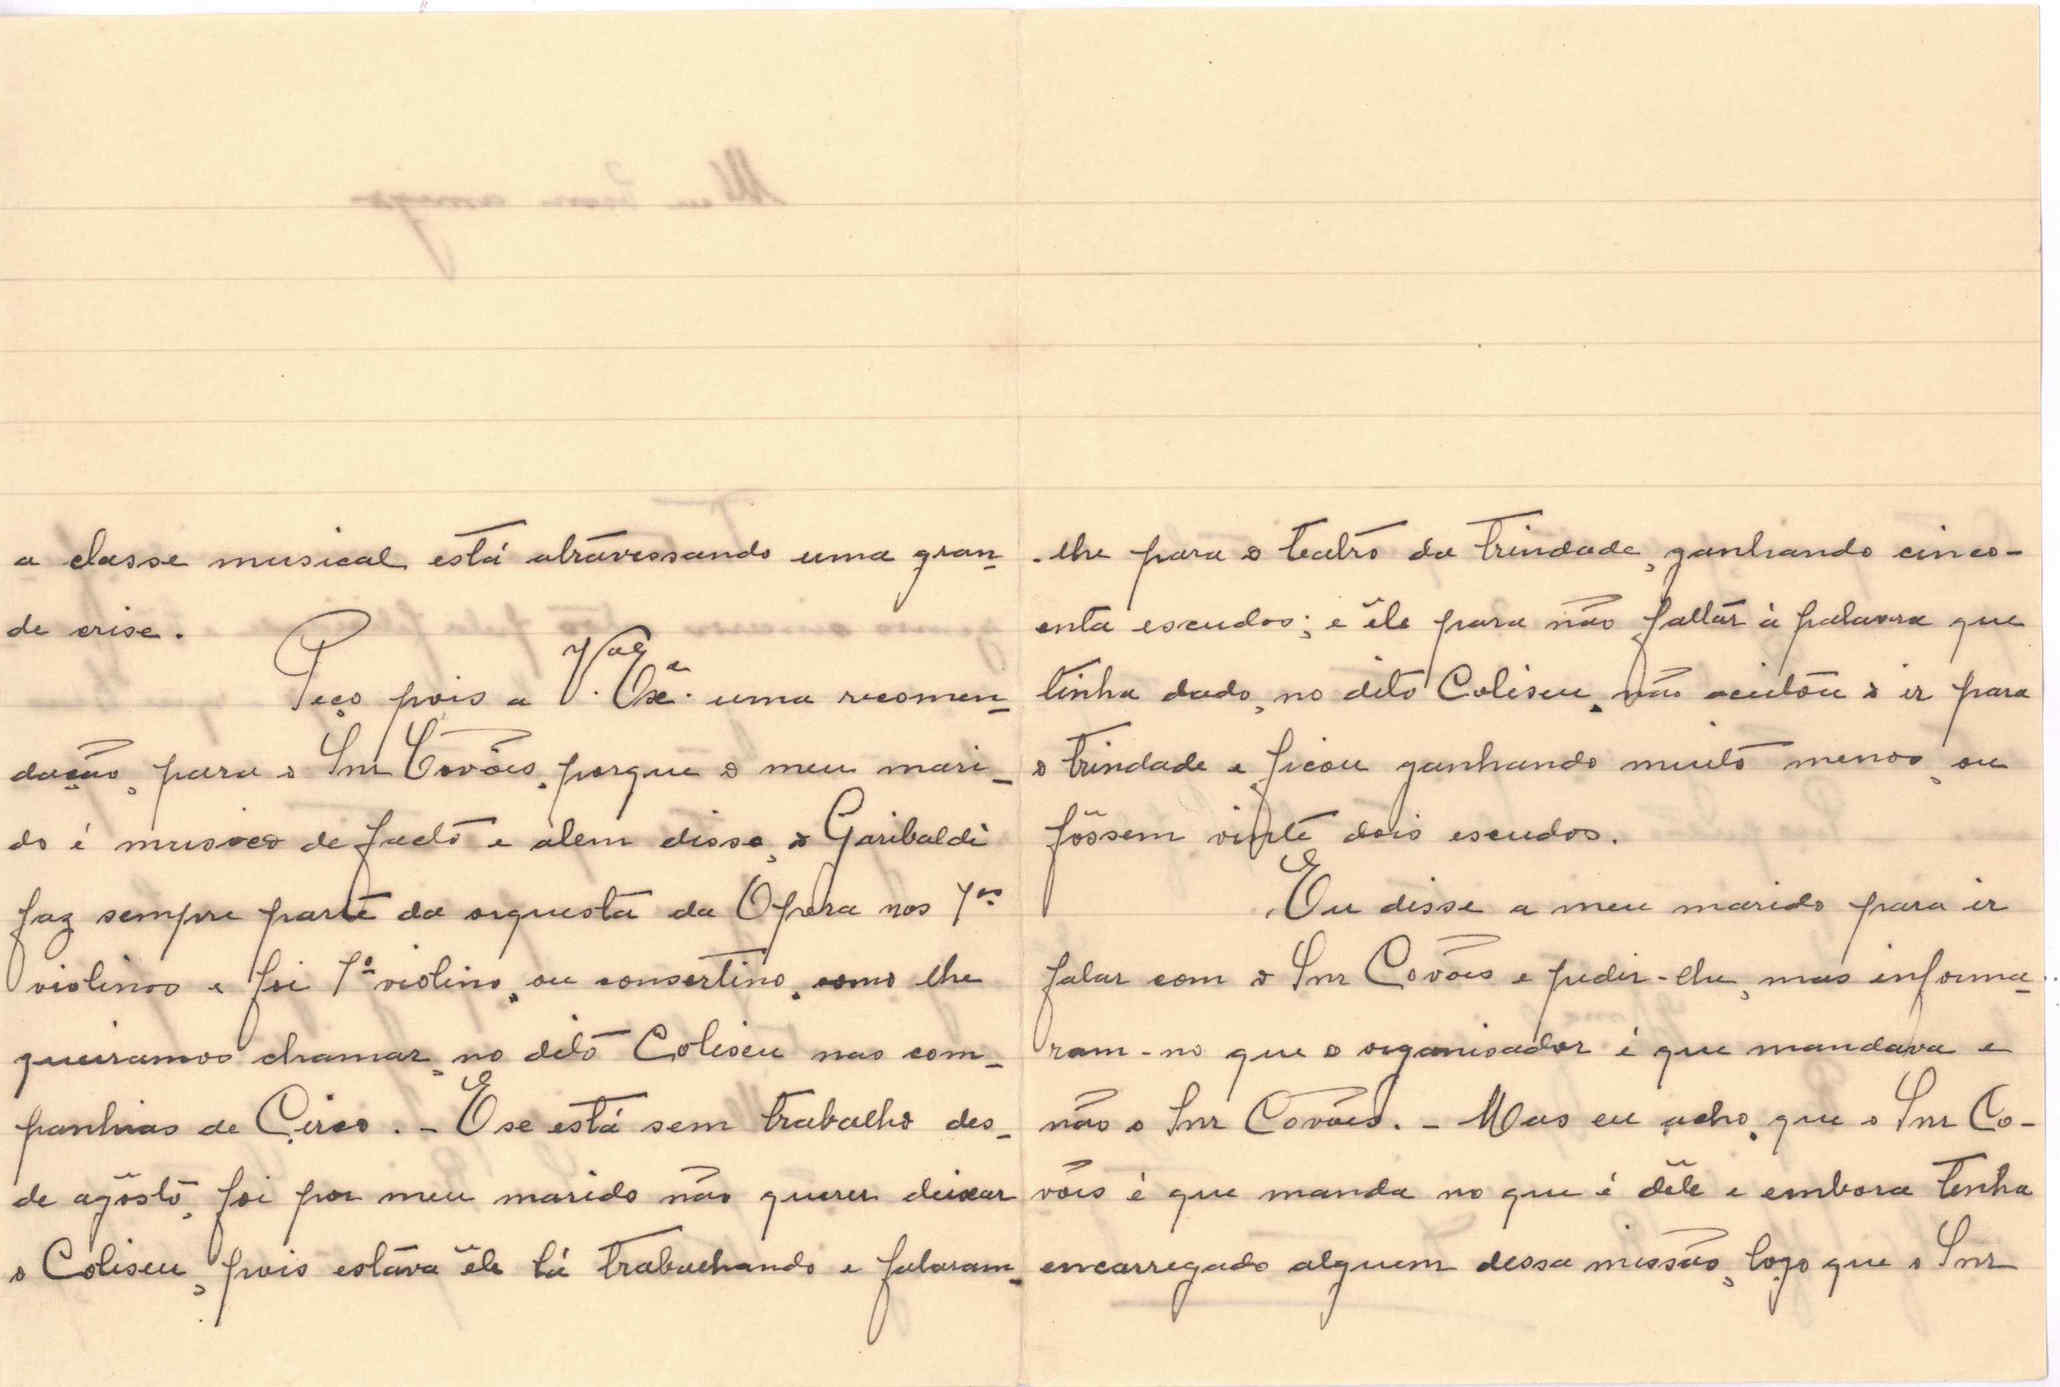 a classe musical está atravessando uma gran-
de crise.
Peço pois a V. Exª. uma recomen-
dação, para o Snr Covões, porque o meu mari-
do é musico de facto e alem disso, o Garibaldi
faz sempre parte da orquesta da Opera nos 1ºs
violinos e foi 1º violino, ou consertino, como lhe
queiramos chamar, no dito Coliseu nas com-
panhias de Circo. - E se está sem trabalho des-
de agôsto, foi por meu marido não querer deixar
o Coliseu, pois estava êle lá trabachando e falaram-
-lhe para o teatro da Trindade, ganhando cinco-
enta escudos; e êle para não faltar á palavra que
tinha dado, no dito Coliseu, não aceitou o ir para
o Trindade e ficou ganhando muito menos, ou
fôssem vinte dois escudos.
Eu disse a meu marido para ir
falar com o Snr Covões e pedir-lhe, mas informa-
ram-no que o organisador é que mandava e
não o Snr Covões. - Mas eu acho, que o Snr Co-
vões é que manda no que é dêle e embora tenha
encarregado alguem dessa missão, logo que o Snr